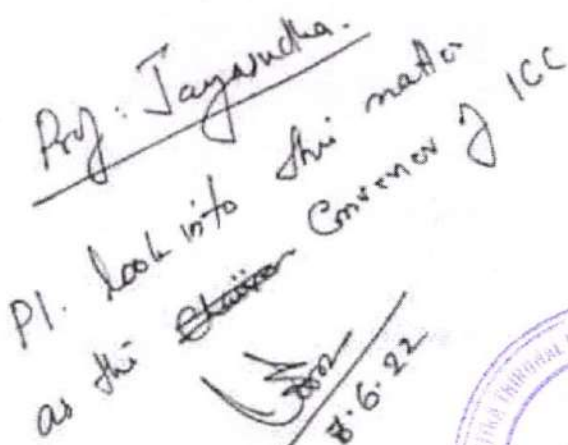 Prof: Jayasudha.
Pl. look into this matter
as the Convenor of ICC
8.6.22